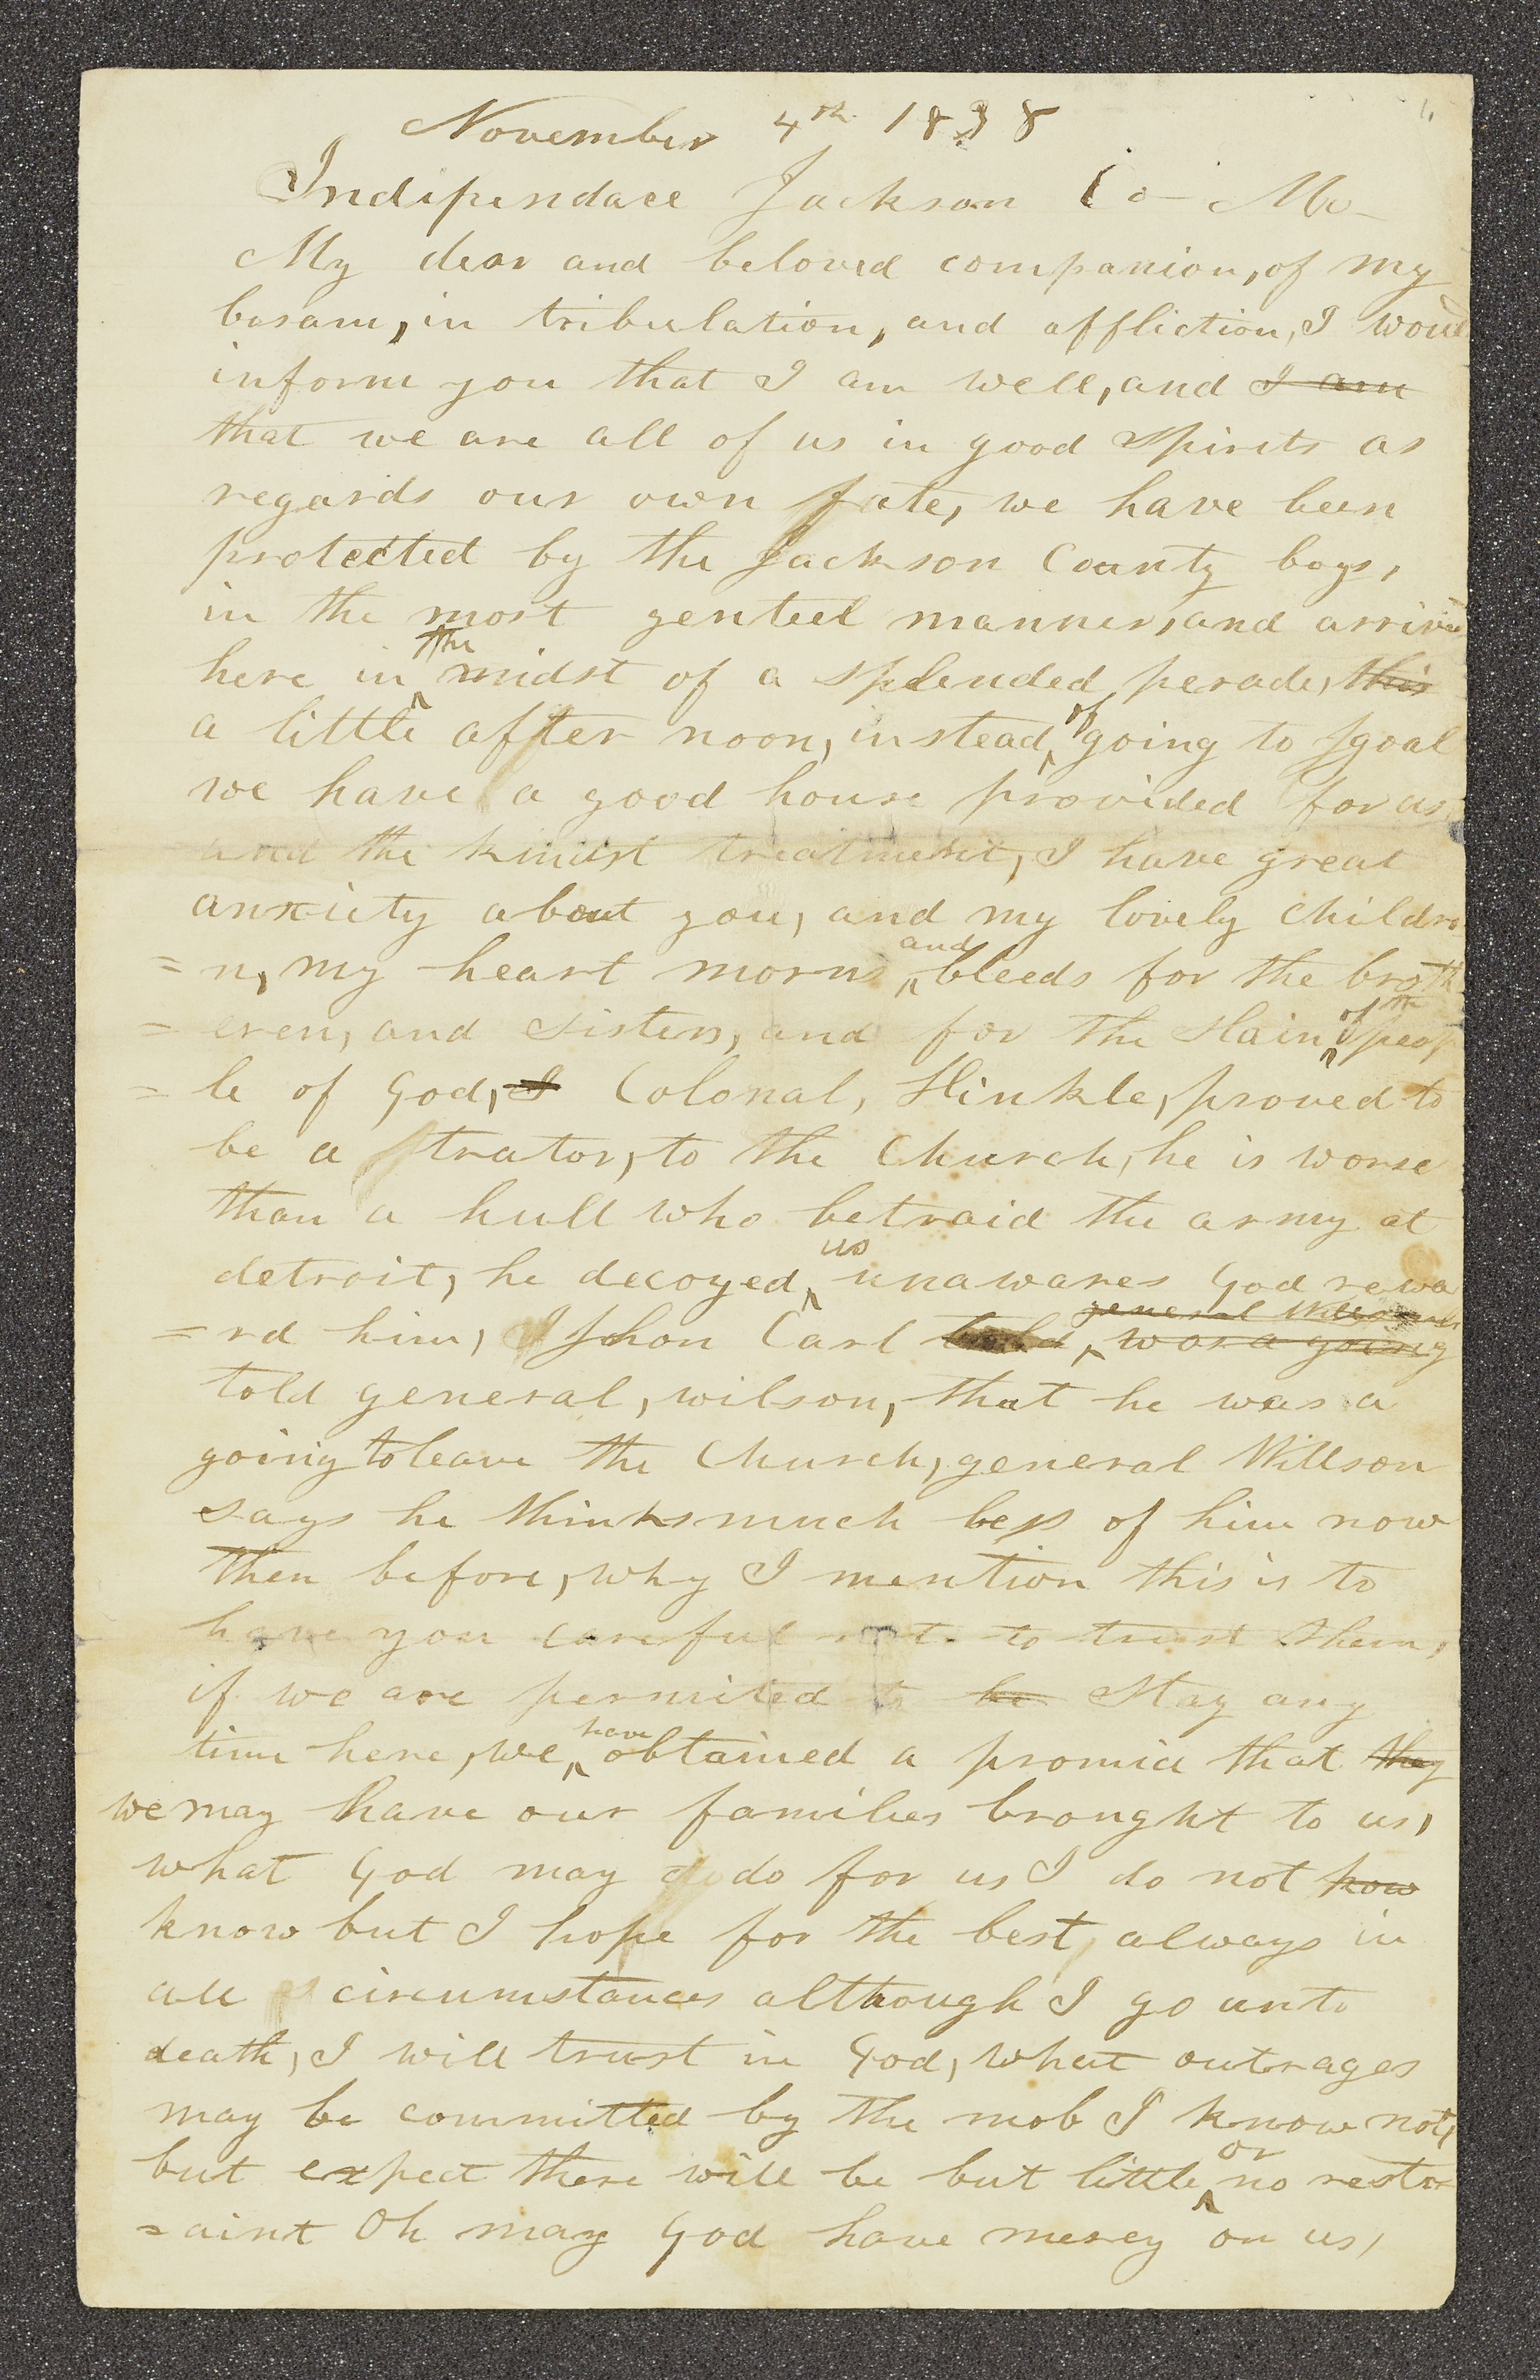 November 4th 1838
Indipendace Jackson Co— Mo—
My dear and beloved companion, of my
bosam, in tribulation, and affliction, I woud
inform you that I am well, and I am
that we are all of us in good spirits as
regards our own fate, we have been
protected by the Jackson County boys,
in the most genteel manner, and arrived
the
here in midst of a splended perade, this
of
a little after noon, instead going to Jgoal
we have a good house provided for us
and the kindst treatment, I have great
anxiety about you, and my lovely childre
and
=n, my heart morns bleeds for the broth
of the
=eren, and sisters, and for the slain peop
=le of God, I Colonal, Hinkle, proved to
be a trator, to the Church, he is worse
than a hull who betraid the army at
us
detroit, he decoyed unawares God rewa
general Willson
=rd him, Jhon Carl told was a going
told general, wilson, that he was a
going to leave the Church, general Willson
says he thinks much less of him now
then before, why I mention this is to
have you careful not to trust them,
if we are permited to be Stay any
have
time here, we obtained a promice that they
we may have our families brought to us,
what God may do do for us I do not how
know but I hope for the best always in
all circumstances although I go unto
death, I will trust in God, what outrages
may be committed by the mob I know not,
or
but expect there will be but little no restr
=aint Oh may God have mercy on us,